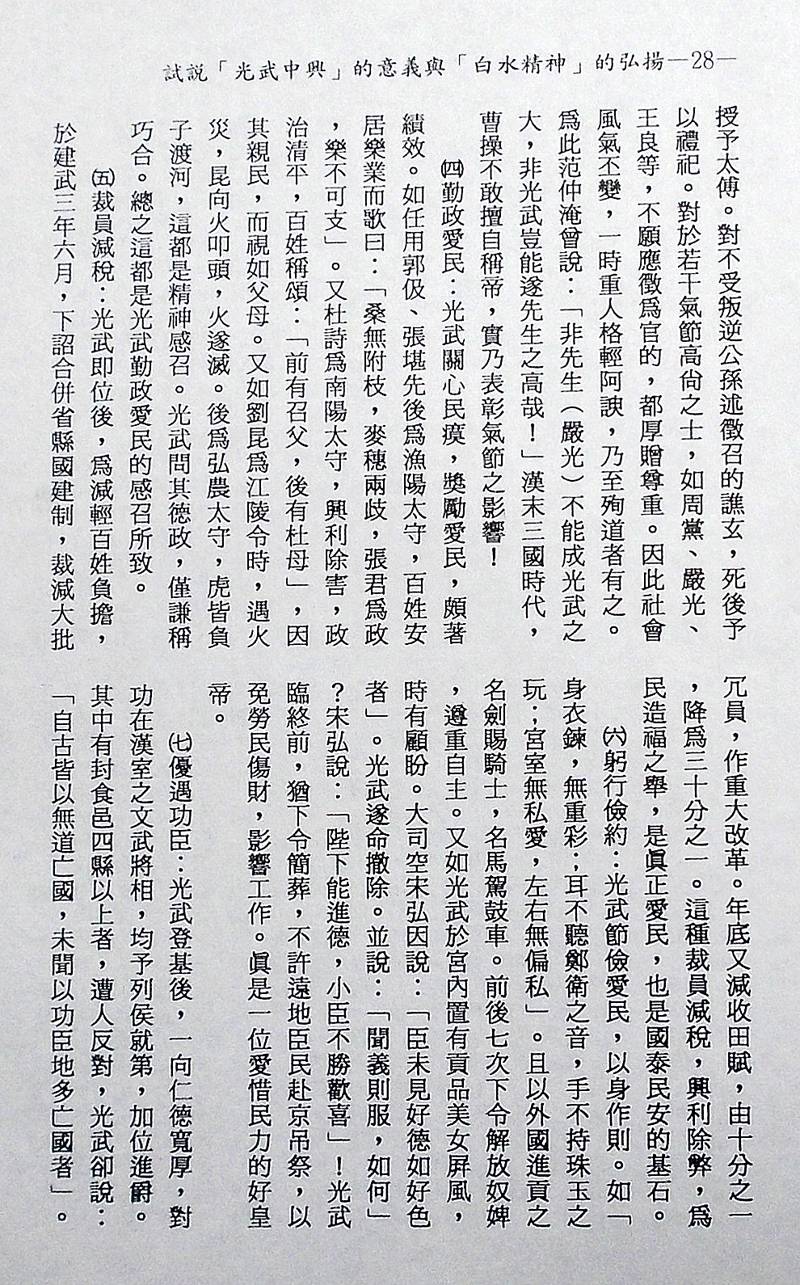 試說「光武中興」的意義與「白水精神」的弘揚—28—
授予太傅。對不受叛逆公孫述徵召的譙玄，死後予
以禮祀。對於若干氣節高尙之士，如周黨、嚴光、
王良等，不願應徵爲官的，都厚贈尊重。因此社會
風氣丕變，一時重人格輕阿諛，乃至殉道者有之。
爲此范仲淹曾說：「非先生（嚴光）不能成光武之
大，非光武豈能遂先生之高哉！」漢末三國時代，
曹操不敢擅自稱帝，實乃表彰氣節之影響！
㈣勤政愛民：光武關心民瘼，獎勵愛民，頗著
績效。如任用郭伋、張堪先後爲漁陽太守，百姓安
居樂業而歌曰：「桑無附枝，麥穗兩歧，張君爲政
，樂不可支」。又杜詩爲南陽太守，興利除害，政
治清平，百姓稱頌：「前有召父，後有杜母」，因
其親民，而視如父母。又如劉昆爲江陵令時，遇火
災，昆向火叩頭，火遂滅。後爲弘農太守，虎皆負
子渡河，這都是精神感召。光武問其德政，僅謙稱
巧合。總之這都是光武勤政愛民的感召所致。
㈤裁員減稅：光武即位後，爲減輕百姓負擔，
於建武三年六月，下詔合併省縣國建制，裁減大批
冗員，作重大改革。年底又減收田賦，由十分之一
，降爲三十分之一。這種裁員減稅，興利除弊，爲
民造福之舉，是眞正愛民，也是國泰民安的基石。
㈥躬行儉約：光武節儉愛民，以身作則。如「
身衣鍊，無重彩；耳不聽鄭衛之音，手不持珠玉之
玩；宮室無私愛，左右無偏私」。且以外國進貢之
名劍賜騎士，名馬駕鼓車。前後七次下令解放奴婢
，遵重自主。又如光武於宮內置有貢品美女屛風，
時有顧盼。大司空宋弘因說：「臣未見好德如好色
者」。光武遂命撤除。並說：「聞義則服，如何」
？宋弘說：「陛下能進德，小臣不勝歡喜」！光武
臨終前，猶下令簡葬，不許遠地臣民赴京吊祭，以
免勞民傷財，影響工作。眞是一位愛惜民力的好皇
帝。
㈦優遇功臣：光武登基後，一向仁德寬厚，對
功在漢室之文武將相，均予列侯就第，加位進爵。
其中有封食邑四縣以上者，遭人反對，光武卻說：
「自古皆以無道亡國，未聞以功臣地多亡國者」。